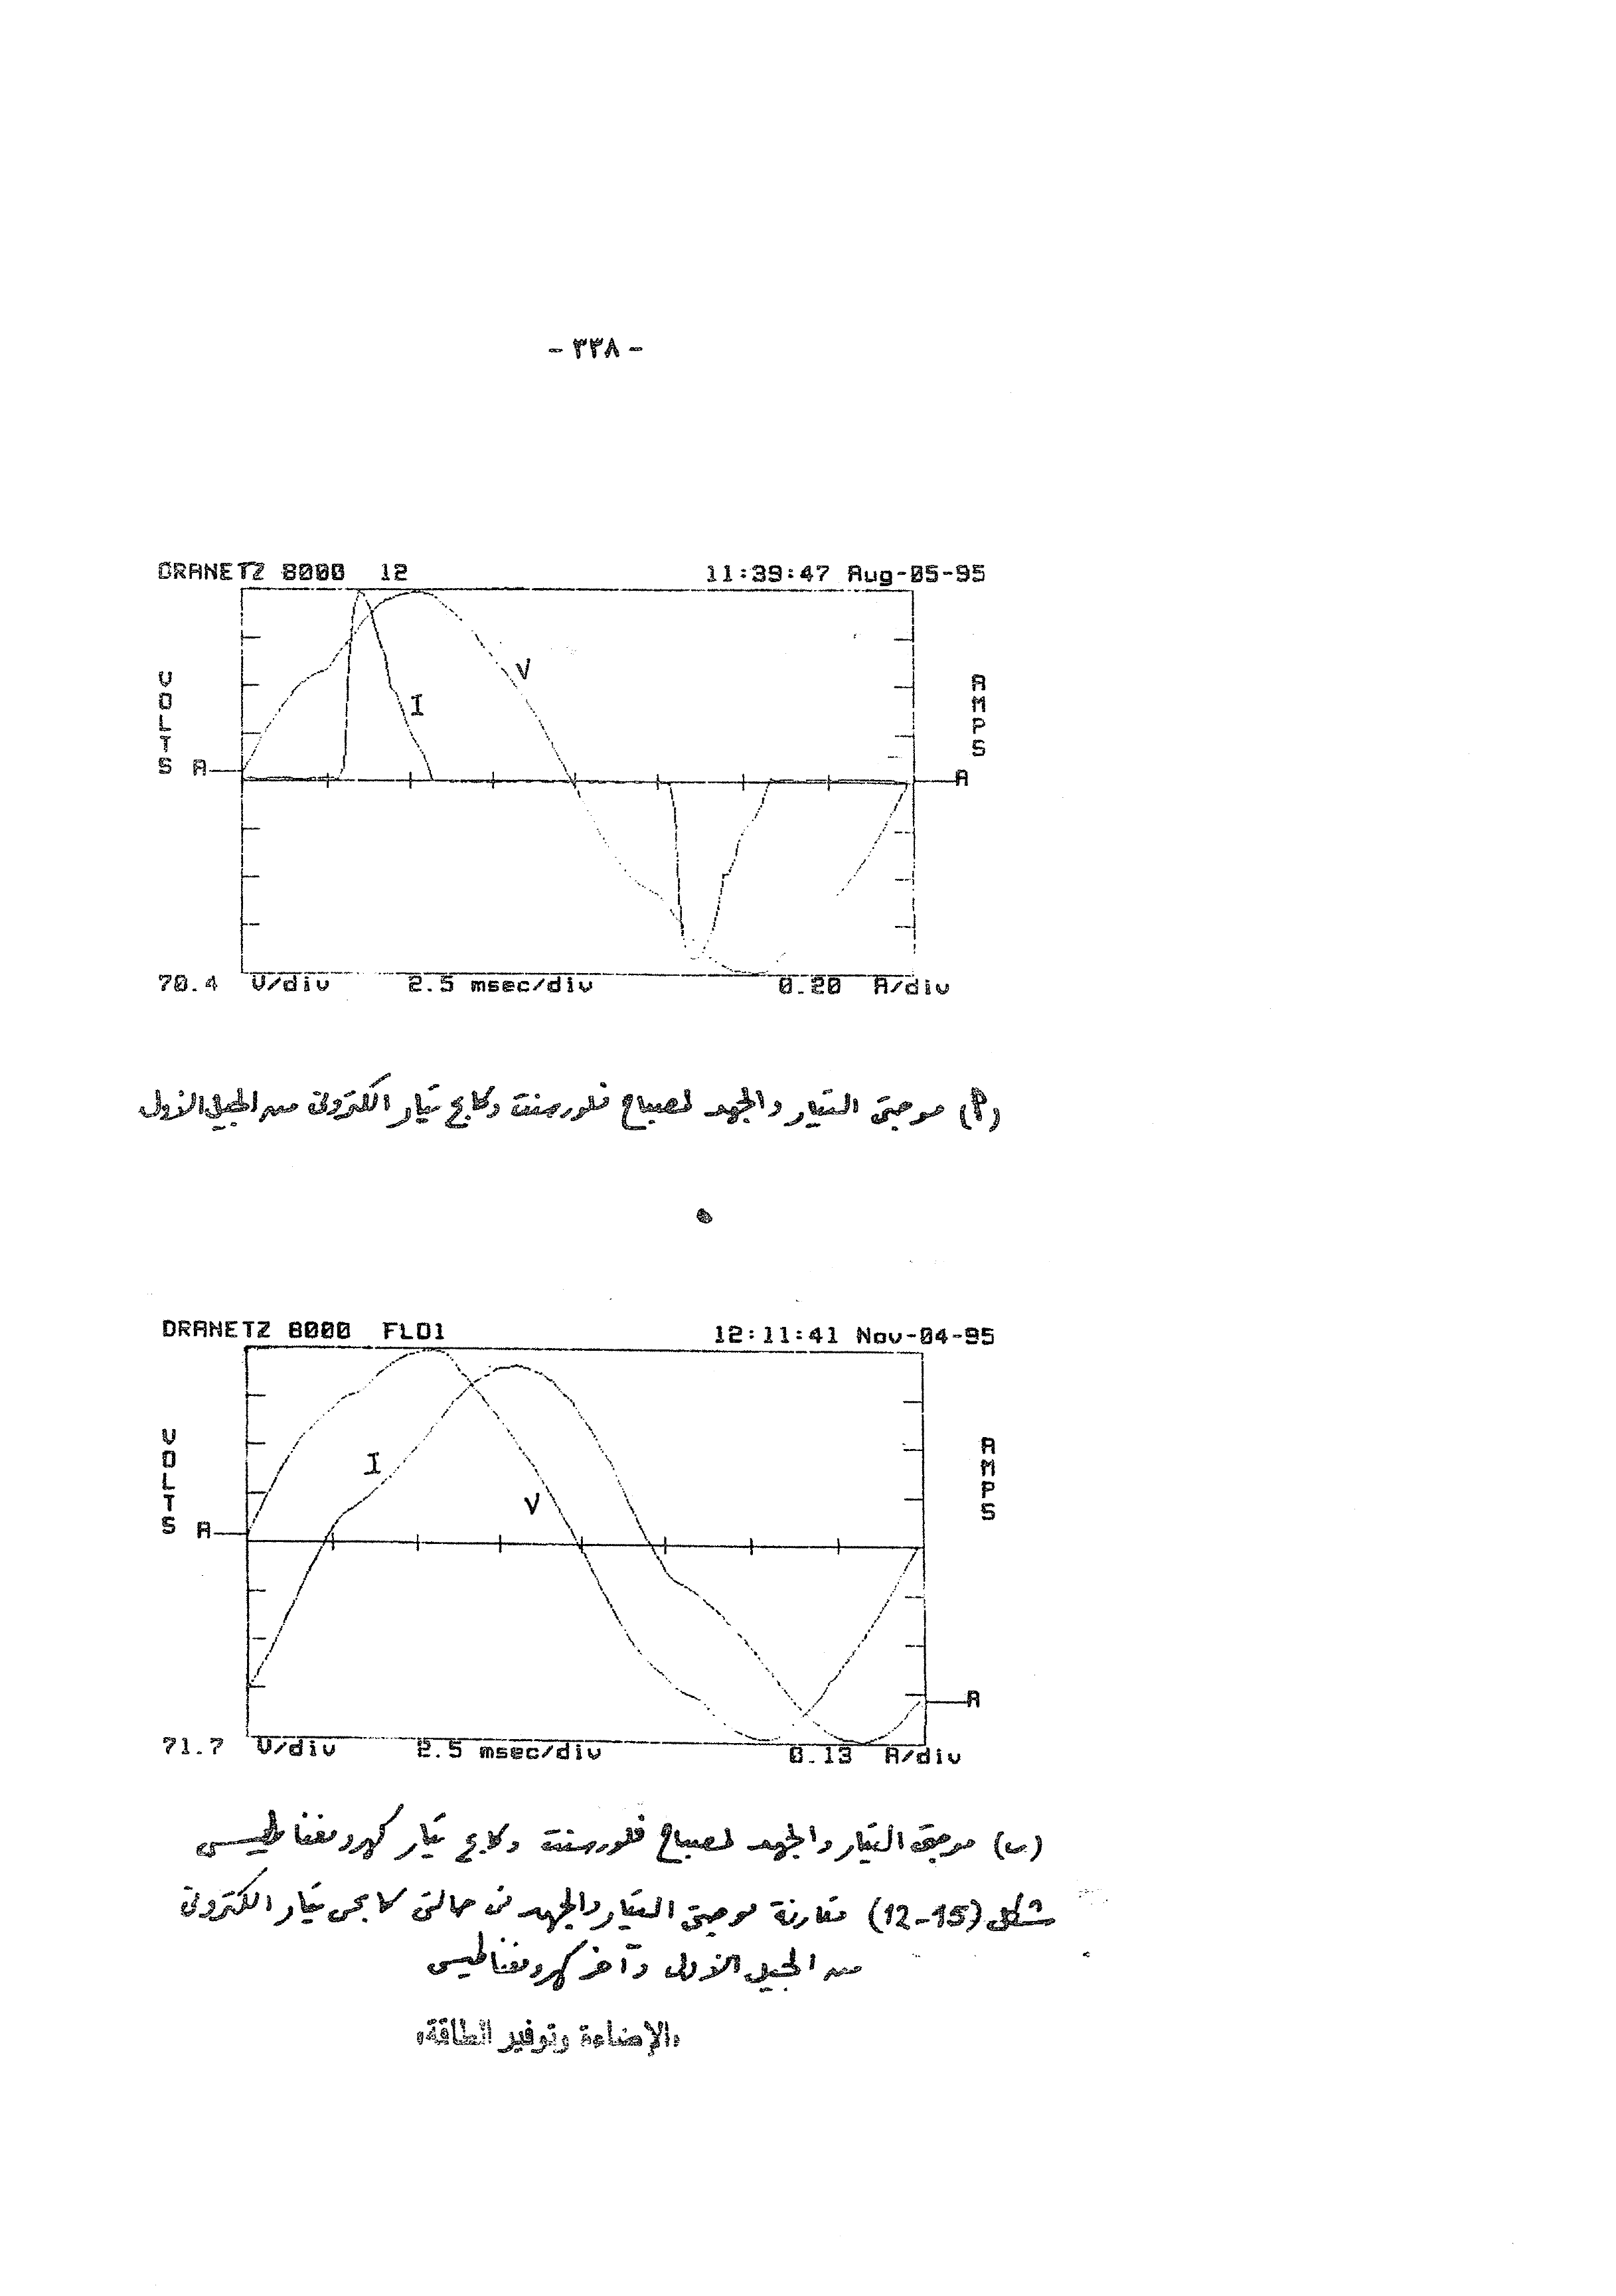 - ٣٣٨ -
DRANETZ 8000 12 11:39:47 Aug-05-95
VOLTS
A
V
I
AMPS
A
70.4 V/div 2.5 msec/div 0.20 A/div
(أ) موجتى التيار والجهد لمصباح فلورسنت وكابح تيار الكترونى من الجيل الأول
DRANETZ 8000 FLO1 12:11:41 Nov-04-95
VOLTS
A
I
V
AMPS
A
71.7 V/div 2.5 msec/div 0.13 A/div
(ب) موجتى التيار والجهد لمصباح فلورسنت وكابح تيار كهرومغناطيسى
شكل (15-12) مقارنة موجتى التيار والجهد فى حالتى كابحى تيار الكترونى
من الجيل الأول وآخر كهرومغناطيسى
«الإضاءة وتوفير الطاقة»